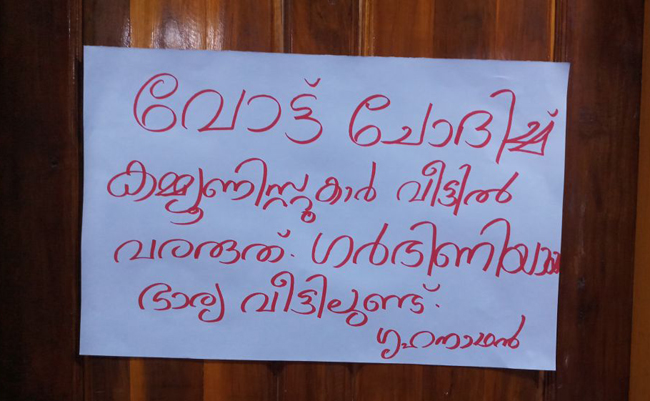 വോട്ട് ചോദിച്ച്
കമ്മ്യൂണിസ്റ്റുകാർ വീട്ടിൽ
വരരുത്. ഗർഭിണിയായ
ഭാര്യ വീട്ടിലുണ്ട്.
ഗൃഹനാഥൻ